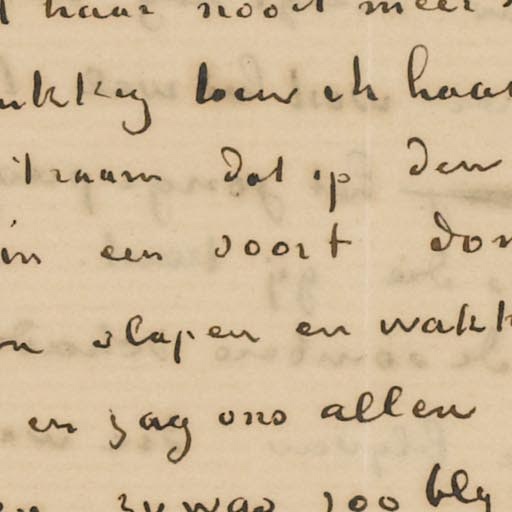 haar nooit meer
ukkig toen ik haar
't raam dat op den
in een soort dom
en slapen en wakk
en zag ons allen
zy was zoo bly